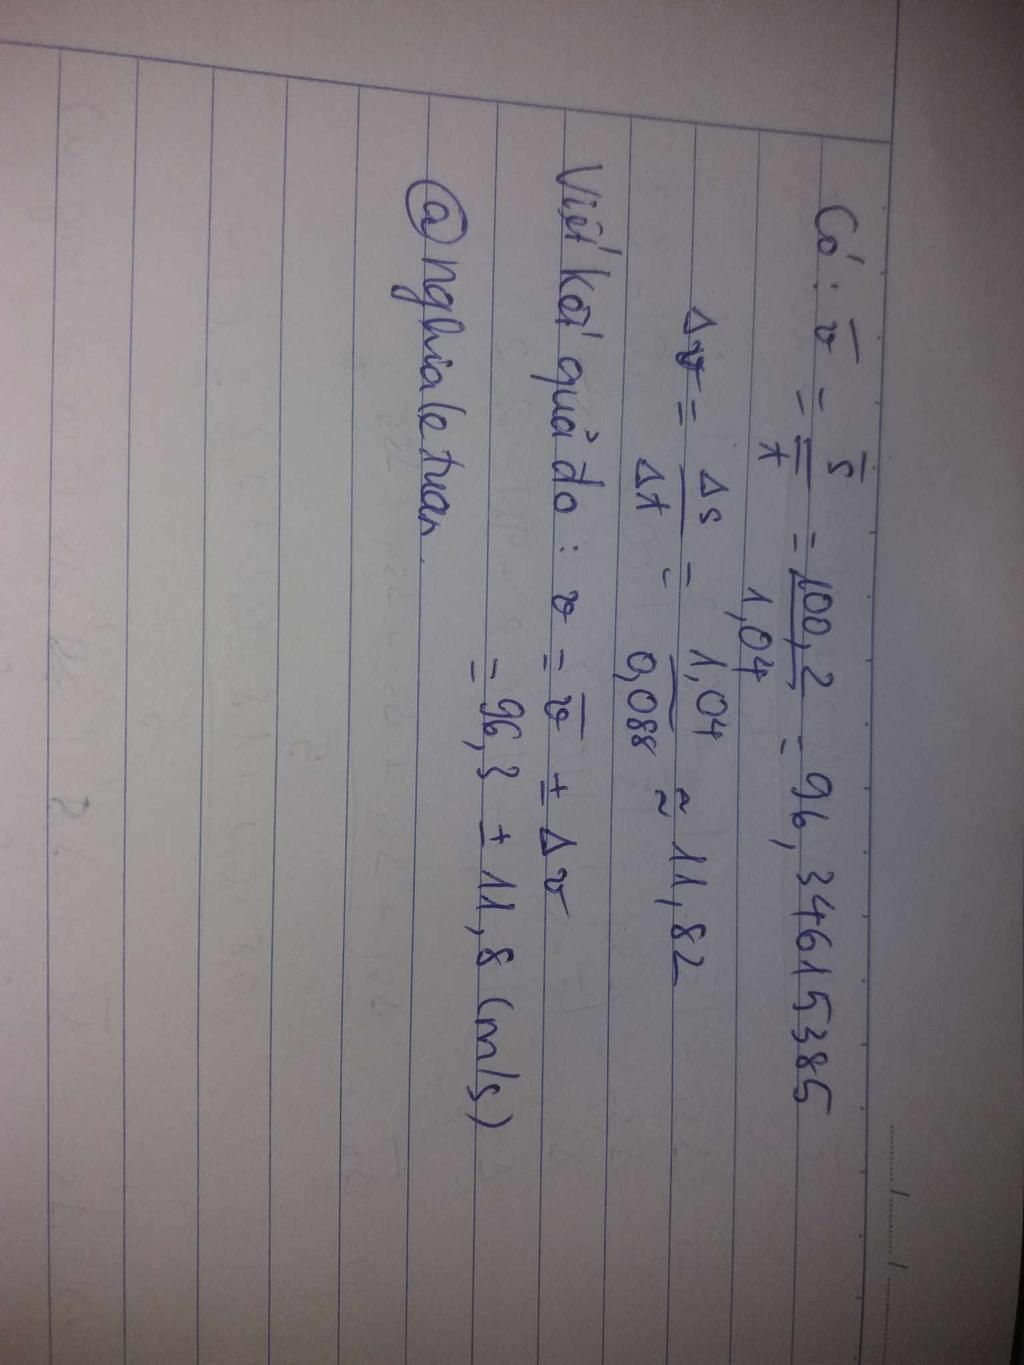 Có : v̄ = s̄ / t̄ = 100,2 / 1,04 = 96,34615385
Δv = Δs / Δt = 1,04 / 0,088 ≈ 11,82
Viết kết quả đo : v = v̄ ± Δv
= 96,3 ± 11,8 (m/s)
@nghialetuan.